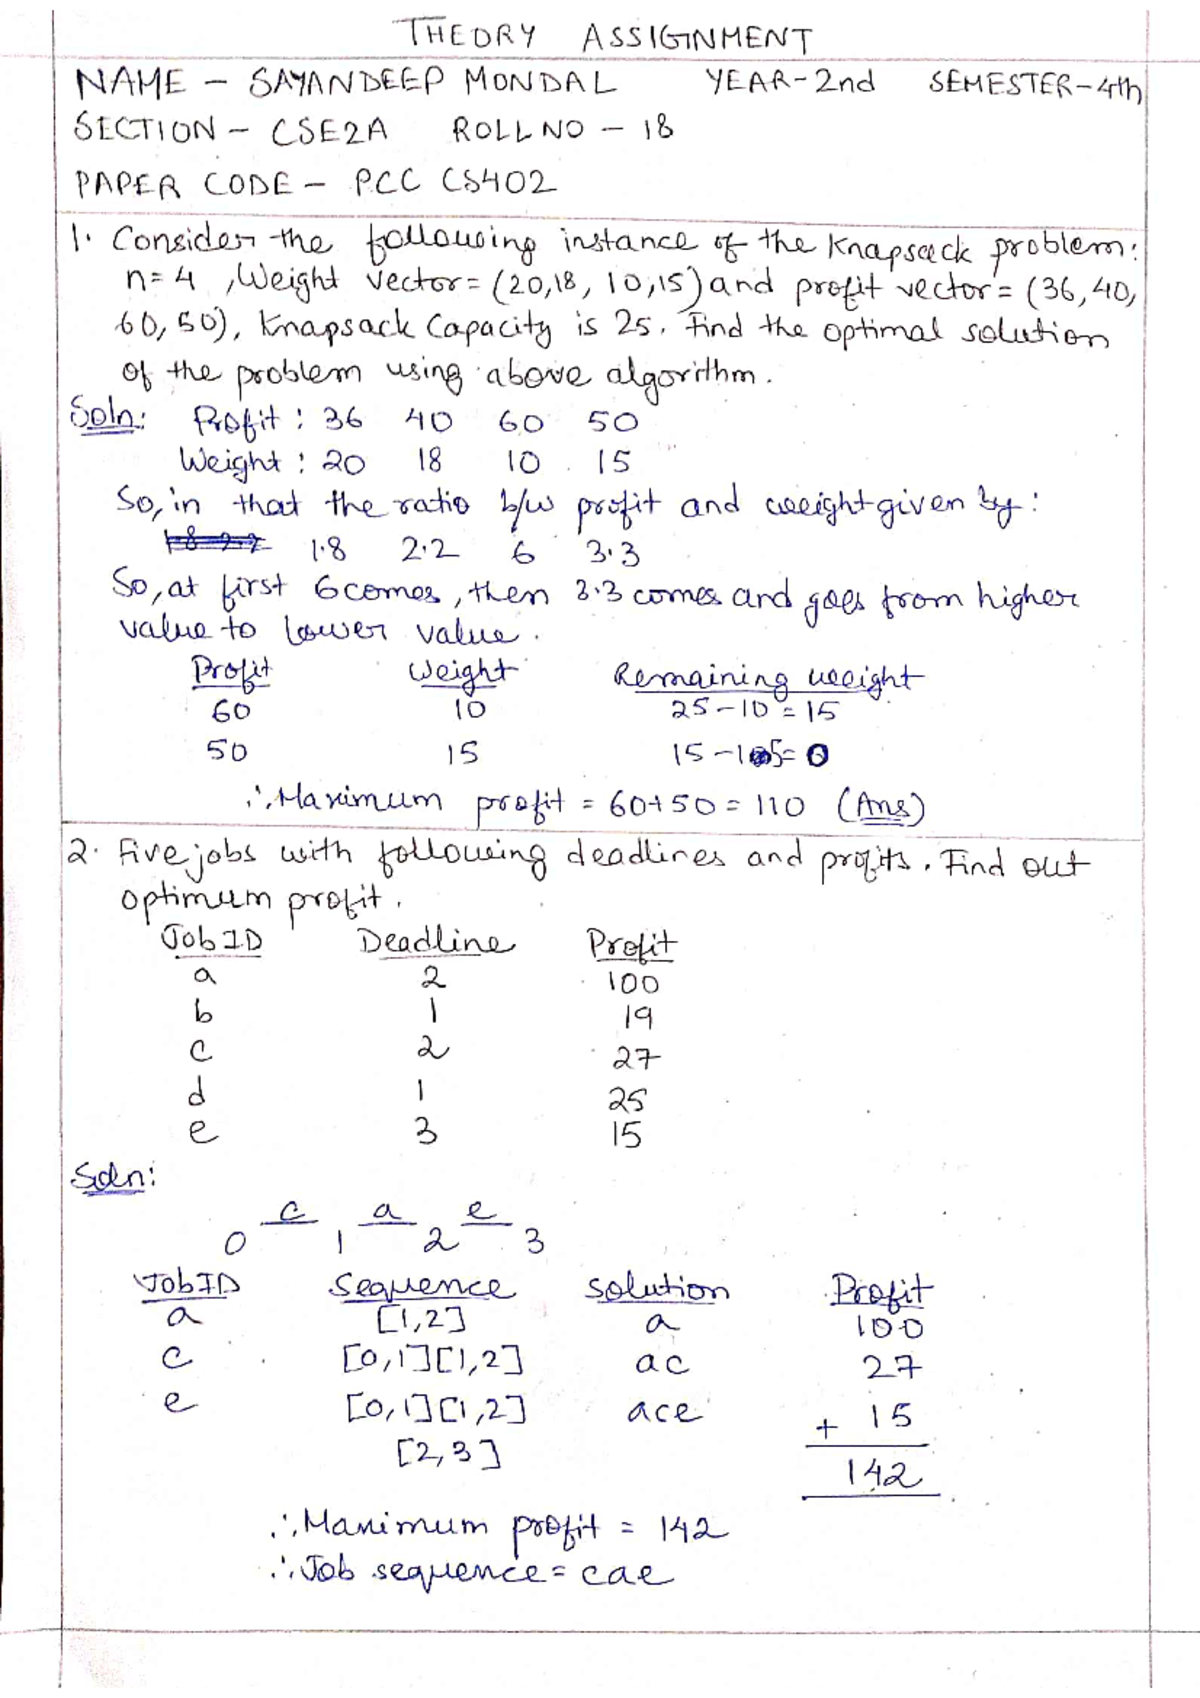 THEORY ASSIGNMENT
NAME - SAYANDEEP MONDAL YEAR-2nd SEMESTER-4th
SECTION - CSE2A ROLL NO - 18
PAPER CODE - PCC CS402
1. Consider the following instance of the Knapsack problem:
n=4, Weight vector=(20,18, 10,15) and profit vector= (36,40,
60,50), Knapsack Capacity is 25. Find the optimal solution
of the problem using above algorithm.
Soln: Profit: 36 40 60 50
Weight: 20 18 10 15
So, in that the ratio b/w profit and weight given by:
1.8 2.2 6 3.3
So, at first 6 comes, then 3.3 comes and goes from higher
value to lower value.
Profit Weight Remaining weight
60 10 25-10=15
50 15 15-15=0
∴ Maximum profit = 60+50 = 110 (Ans)
2. Five jobs with following deadlines and profits. Find out
optimum profit.
Job ID Deadline Profit
a 2 100
b 1 19
c 2 27
d 1 25
e 3 15
Soln:
c a e
0 1 2 3
Job ID Sequence solution Profit
a [1,2] a 100
c [0,1][1,2] ac 27
e [0,1][1,2] ace + 15
[2,3] 142
∴ Maximum profit = 142
∴ Job sequence = cae